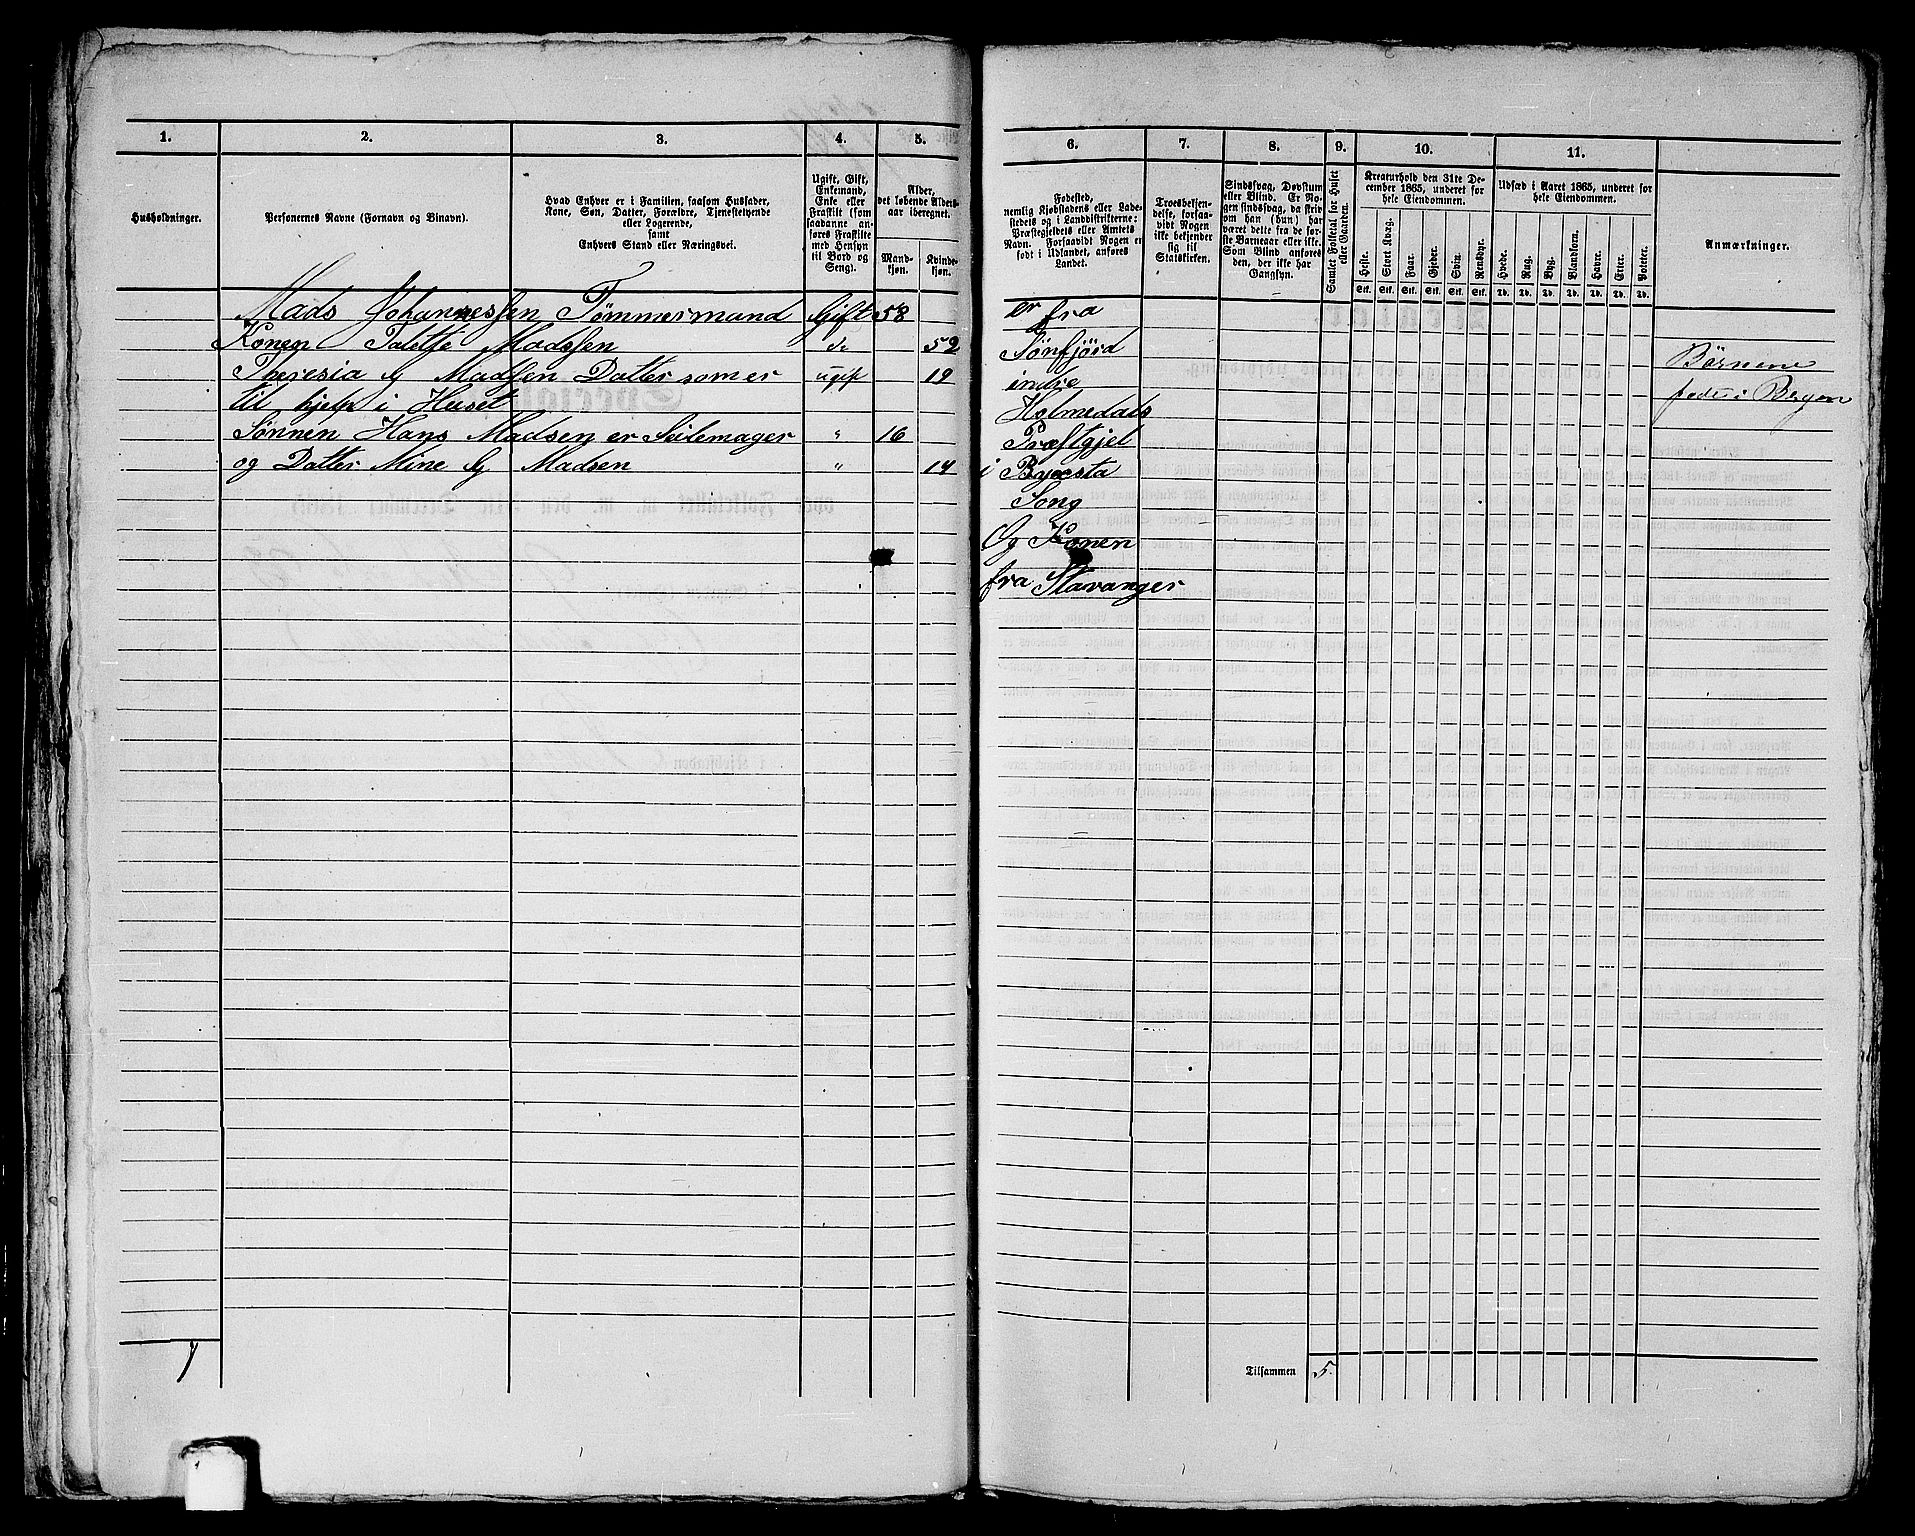 1.
2.
3.
4.
5.
Husholdninger.
Personernes Navne (Fornavn og Binavn).
Hvad Enhver er i Familien, saasom Husfader,
Kone, Søn, Datter, Forældre, Tjenestetyende
eller Logerende,
samt
Enhvers Stand eller Næringsvei.
Ugift, Gift,
Enkemand,
Enke eller
Fraskilt (som
saadanne an-
føres Fraskilte
med Hensyn
til Bord og
Seng).
Alder,
det løbende Alders-
aar iberegnet.
Mand-
kjøn.
Kvinde-
kjøn.
Mads Johannessen Tømmermand Gift 58
Konen Taletje Madssen do 52
Theresia G Madsen Datter som er ugift 19
til hjelp i Huset
Sønnen Hans Madsen er Seilemager " 16
og Datter Mine G Madsen " 14
6.
7.
8.
9.
10.
11.
Fødested,
nemlig Kjøbstadens eller Lade-
stedets og i Landdistrikterne:
Præstegjeldets eller Amtets
Navn. Forsaavidt Nogen er
født i Udlandet, anføres
Landet.
Troesbekjen-
delse, forsaa-
vidt Nogen
ikke bekjender
sig til
Statskirken.
Sindssvag, Døvstum
eller Blind. Er No-
gen sindssvag, da skriv
om han (hun) har
været dette fra de før-
ste Barneaar eller ikke.
Som Blind anføres
den, der ikke har
Gangsyn.
Samlet Folketal for Huset
eller Gaarden.
Kreaturhold den 31te De-
cember 1865, underet for
hele Eiendommen.
Heste.
Stort Kvæg.
Faar.
Gjeder.
Svin.
Rensdyr.
Stk. Stk. Stk. Stk. Stk. Stk.
Udsæd i Aaret 1865, underet for
hele Eiendommen.
Hvede.
Rug.
Byg.
Blandkorn.
Havre.
Erter.
Poteter.
Td. Td. Td. Td. Td. Td. Td.
Anmærkninger.
er fra
Sønfjörd
indre
Holmedals
Præstgjel
i
Song
Og Konen
fra Stavanger
Börnene
föde i Bergen
Tilsammen 5.